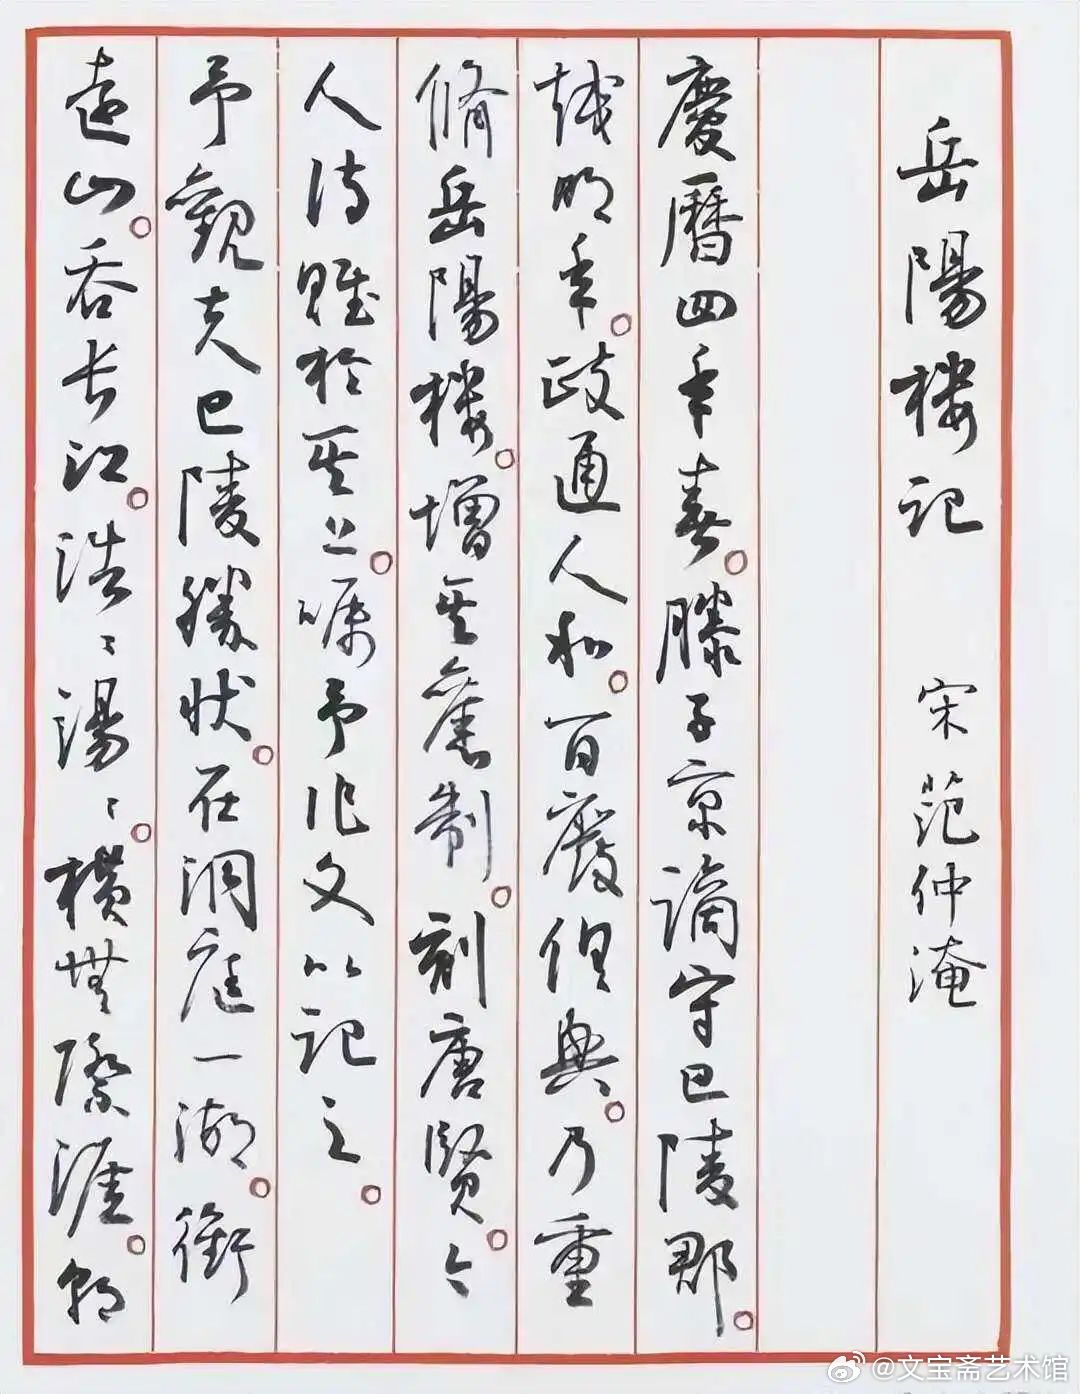 岳陽楼記 宋 范仲淹
慶曆四年春。滕子京謫守巴陵郡。
越明年。政通人和。百廢俱興。乃重
脩岳陽楼。增其舊制。刻唐賢。今
人詩賦於其上。囑予作文以記之。
予觀夫巴陵勝狀。在洞庭一湖。銜
遠山。吞長江。浩〻湯〻。橫無際涯。朝
@文宝斋艺术馆